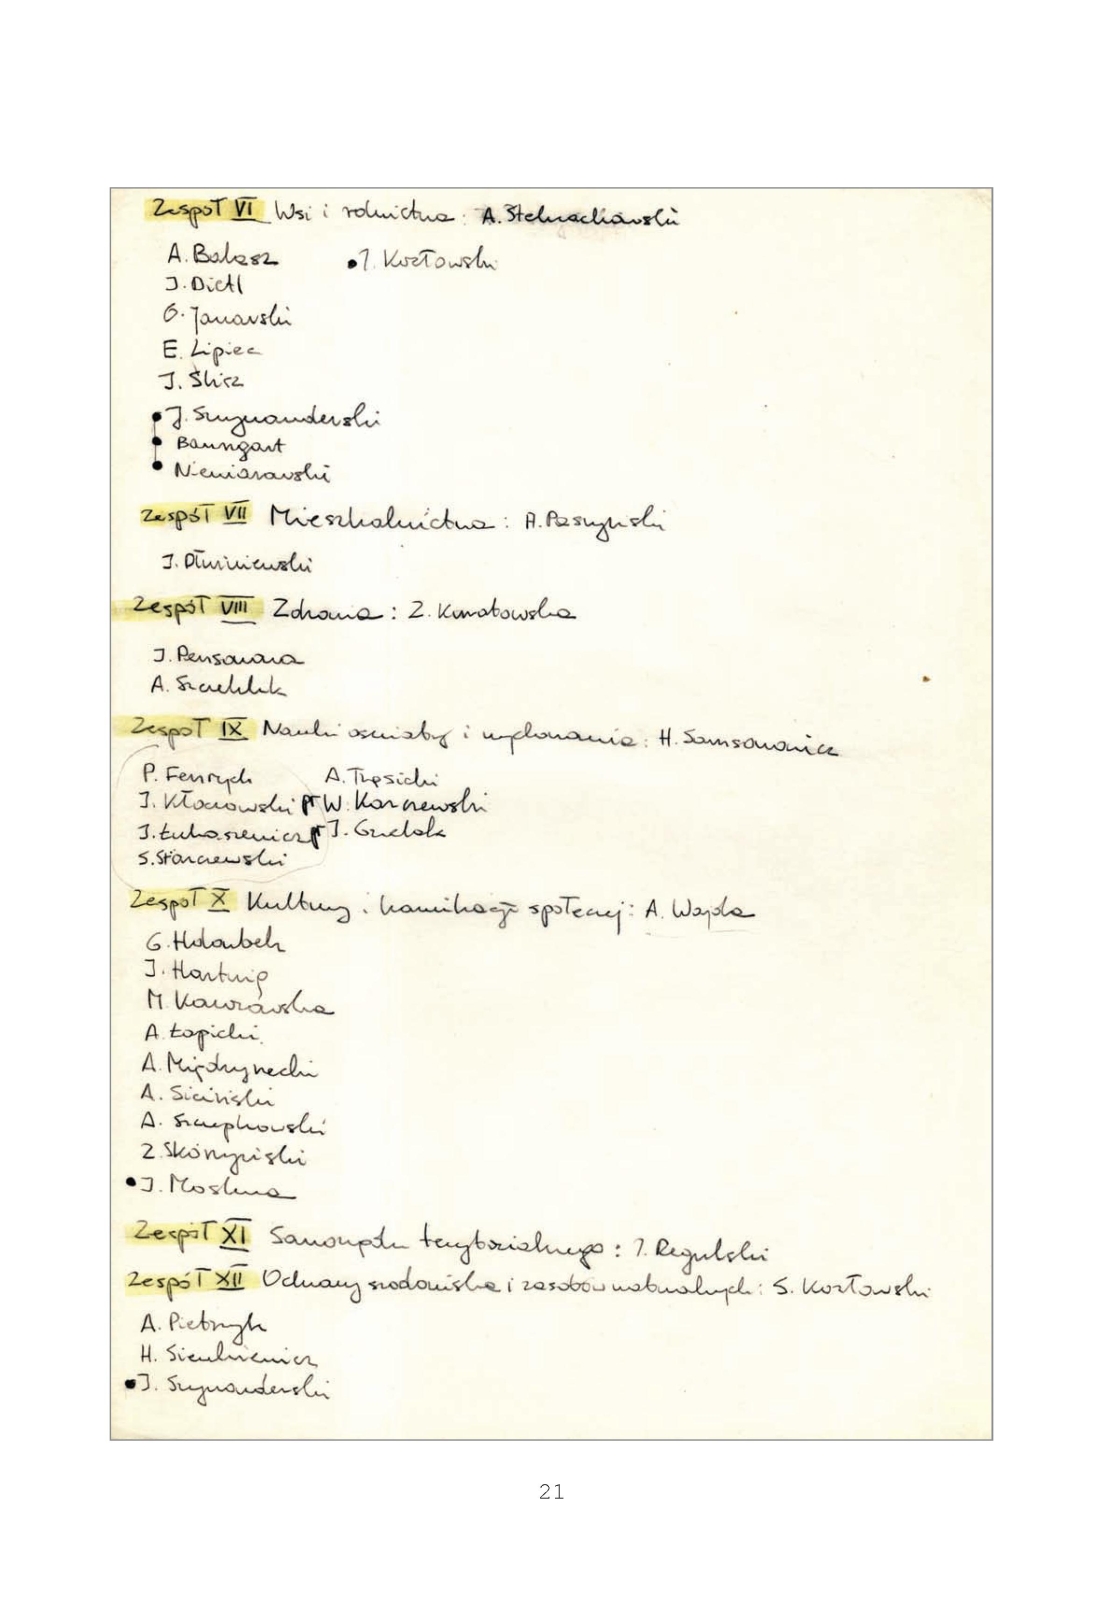 Zespoł VI Wsi i rolnictwa: A. Stelmachowski
A. Balasz • J. Kozłowski
J. Dietl
G. Janowski
E. Lipiec
J. Ślisz
• J. Szymanderski
• Baumgart
• Niewiarowski
Zespół VII Mieszkalnictwa: A. Paszyński
J. Dłużniewski
Zespół VIII Zdrowia: Z. Kuratowska
J. Pensonowa
A. Szczeklik
Zespoł IX Nauki oświaty i wychowania: H. Samsonowicz
P. Fenrych A. Tręsicki
J. Kłoczowski W. Karczewski
J. Łukasiewicz J. Gudok
S. Starczewski
Zespoł X Kultury i komunikacji społecznej: A. Wajda
G. Holoubek
J. Hartwig
M. Kawzowska
A. Łapicki
A. Międzyrzecki
A. Siciński
A. Szczepkowski
Z. Skórzyński
• J. Moskwa
Zespół XI Samorządu terytorialnego: J. Regulski
Zespół XII Ochrony środowiska i zasobów naturalnych: S. Kozłowski
A. Pietrzyk
H. Sienkiewicz
• J. Szymanderski
21